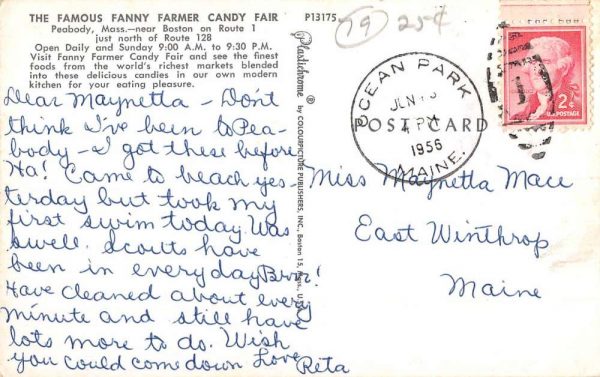 THE FAMOUS FANNY FARMER CANDY FAIR
Peabody, Mass.—near Boston on Route 1
just north of Route 128
Open Daily and Sunday 9:00 A.M. to 9:30 P.M.
Visit Fanny Farmer Candy Fair and see the finest
foods from the world's richest markets blended
into these delicious candies in our own modern
kitchen for your eating pleasure.
Dear Maynetta - Don't
think I've been to Pea-
body - I got these before
Ha! Came to beach yes-
terday but took my
first swim today. Was
swell. Scouts have
been in everyday Brrr!
Have cleaned about every
minute and still have
lots more to do. Wish
you could come down Love
Reta
P13175
Plastichrome ® by COLOURPICTURE PUBLISHERS, INC., Boston 15, Mass., U.S.
19 25¢
OCEAN PARK
JUN
PM
1956
MAINE.
POST CARD
2¢
U.S. POSTAGE
Miss Maynetta Mace
East Winthrop
Maine